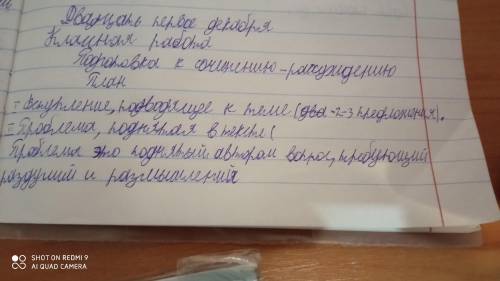 Двадцать первое декабря
Классная работа
Подготовка к сочинению-рассуждению
План
- Вступление, подводящее к теме (два-2-3 предложения).
- Проблема, поднятая в тексте (
Проблема это поднятый автором вопрос, требующий
раздумий и размышлений
SHOT ON REDMI 9
AI QUAD CAMERA